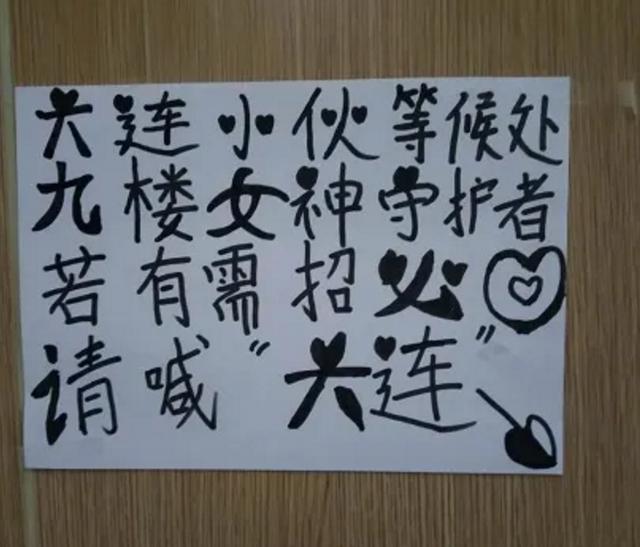 六连小伙等候处
九楼女神守护者
若有需招必
请喊“六连”